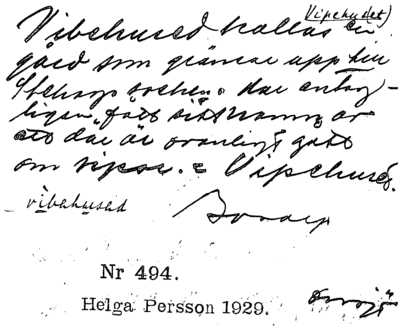 Vipehuset)
Vibehused kallas en
gård som gränsar upp till
socken. har antag-
ligen fått sitt namn av
att där är ovanligt gott
om vipor. = Vipehuset.
vibehused
Nr 494.
Helga Persson 1929.